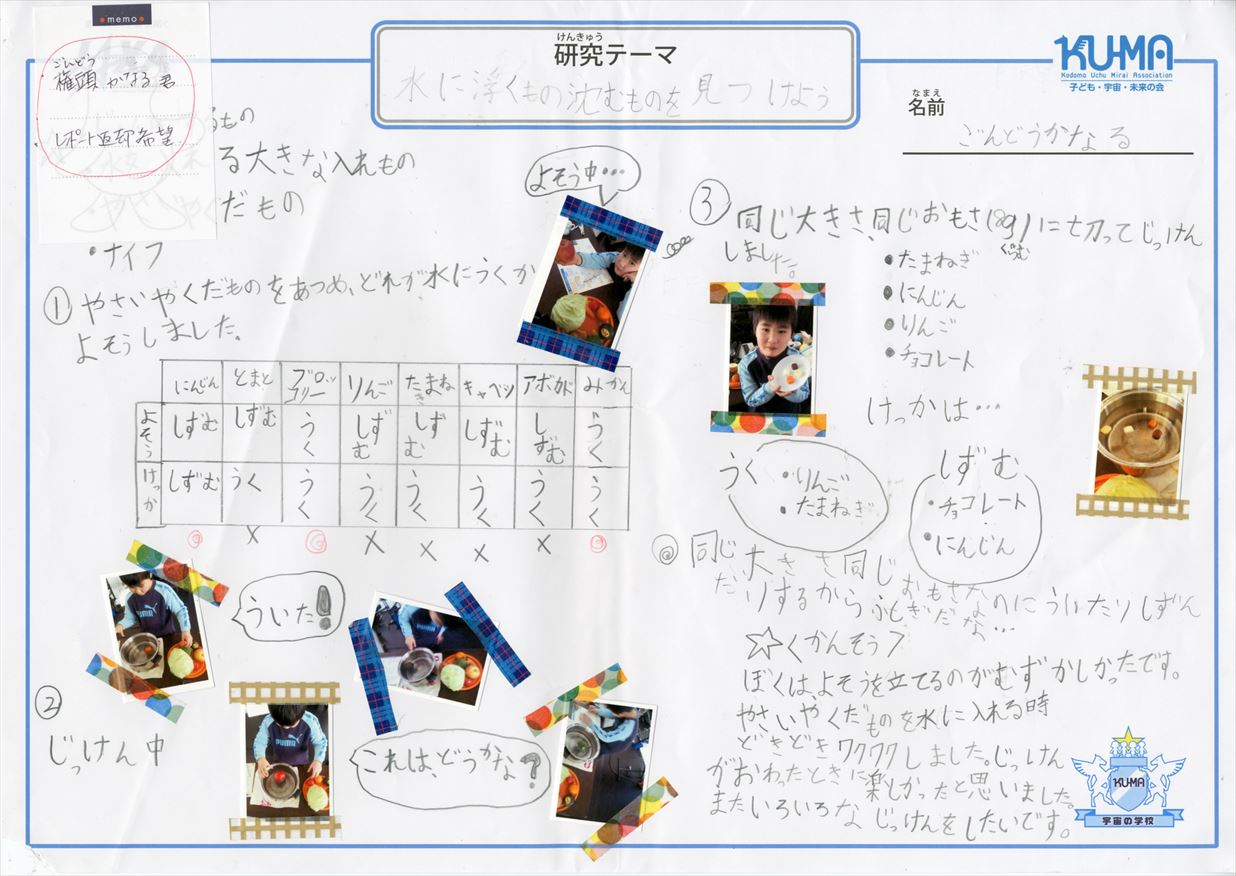 memo
ごんどう
権頭 かなる 君
レポート返却希望
けんきゅう
研究テーマ
水に浮くもの沈むものを見つけよう
KU-MA
Kodomo Uchu Mirai Association
子ども・宇宙・未来の会
なまえ
名前
ごんどうかなる
るもの
る大きな入れもの
だもの
・ナイフ
① やさいやくだものをあつめ、どれが水にうくか
よそうしました。
よそう中…
にんじん とまと ブロッコリー りんご たまねぎ キャベツ アボカド みかん
よそう しずむ しずむ うく しずむ しずむ しずむ しずむ うく
けっか しずむ うく うく うく うく うく うく うく
◎ × ◎ × × × × ◎
ういた!
②
じっけん中
これは、どうかな?
PUMA
③ 同じ大きさ、同じおもさ(8g)に切ってじっけん
ぐらむ
しました。
・たまねぎ
・にんじん
・りんご
・チョコレート
けっかは…
うく
・りんご
・たまねぎ
しずむ
・チョコレート
・にんじん
◎ 同じ大きさ同じおもさなのにういたりしずん
だりするからふしぎだな…
☆くかんそう>
ぼくは、よそうを立てるのがむずかしかったです。
やさいやくだものを水に入れる時
どきどきワクワクしました。じっけん
がおわったときに楽しかったと思いました。
またいろいろなじっけんをしたいです。
KUMA
宇宙の学校